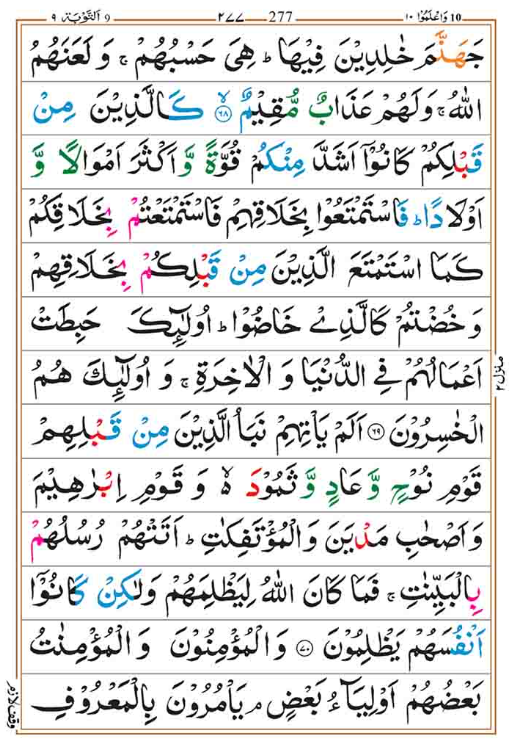 ١٠ وَاعْلَمُوْٓا 10 277 ٢٧٧ 9 اَلتَّوْبَة ٩
جَهَنَّمَ خٰلِدِيْنَ فِيْهَا ؕ هِىَ حَسْبُهُمْ ۚ وَ لَعَنَهُمُ
اللّٰهُ ۚ وَلَهُمْ عَذَابٌ مُّقِيْمٌ ۙ‏ ﴿٦٨﴾ كَالَّذِيْنَ مِنْ
قَبْلِكُمْ كَانُوْۤا اَشَدَّ مِنْكُمْ قُوَّةً وَّ اَكْثَرَ اَمْوَالًا وَّ
اَوْلَادًا ؕ فَاسْتَمْتَعُوْا بِخَلَاقِهِمْ فَاسْتَمْتَعْتُمْ بِخَلَاقِكُمْ
كَمَا اسْتَمْتَعَ الَّذِيْنَ مِنْ قَبْلِكُمْ بِخَلَاقِهِمْ
وَ خُضْتُمْ كَالَّذِىْ خَاضُوْا ؕ اُولٰۤئِكَ حَبِطَتْ
اَعْمَالُهُمْ فِى الدُّنْيَا وَ الْاٰخِرَةِ ۚ وَ اُولٰۤئِكَ هُمُ
الْخٰسِرُوْنَ ﴿٦٩﴾ اَلَمْ يَاْتِهِمْ نَبَاُ الَّذِيْنَ مِنْ قَبْلِهِمْ
قَوْمِ نُوْحٍ وَّ عَادٍ وَّ ثَمُوْدَ ۙ وَ قَوْمِ اِبْرٰهِيْمَ
وَ اَصْحٰبِ مَدْيَنَ وَالْمُؤْتَفِكٰتِ ؕ اَتَتْهُمْ رُسُلُهُمْ
بِالْبَيِّنٰتِ ۚ فَمَا كَانَ اللّٰهُ لِيَظْلِمَهُمْ وَلٰكِنْ كَانُوْۤا
اَنْفُسَهُمْ يَظْلِمُوْنَ ﴿٧٠﴾ وَ الْمُؤْمِنُوْنَ وَ الْمُؤْمِنٰتُ
بَعْضُهُمْ اَوْلِيَآءُ بَعْضٍ ۘ يَاْمُرُوْنَ بِالْمَعْرُوْفِ
منزل ٢
وقف لازم